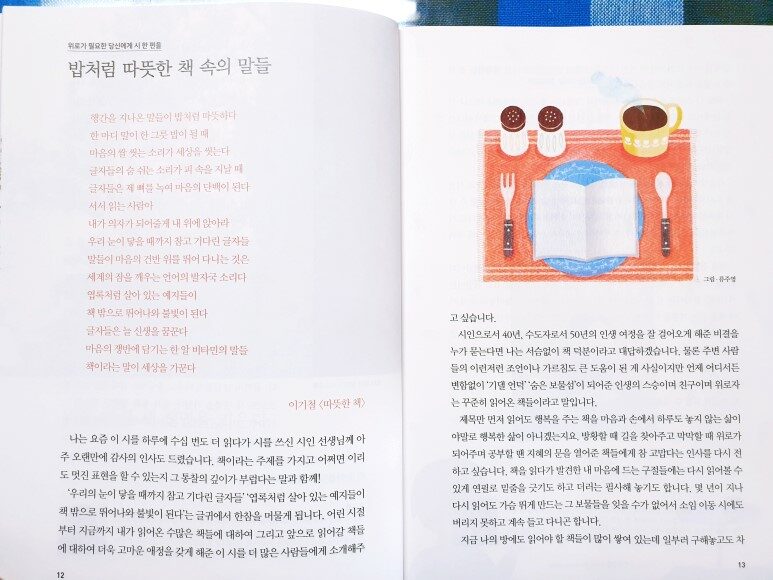 위로가 필요한 당신에게 시 한 편을
밥처럼 따뜻한 책 속의 말들
행간을 지나온 말들이 밥처럼 따뜻하다
한 마디 말이 한 그릇 밥이 될 때
마음의 쌀 씻는 소리가 세상을 씻는다
글자들의 숨 쉬는 소리가 피 속을 지날 때
글자들은 제 뼈를 녹여 마음의 단백이 된다
서서 읽는 사람아
내가 의자가 되어줄게 내 위에 앉아라
우리 눈이 닿을 때까지 참고 기다린 글자들
말들이 마음의 건반 위를 뛰어 다니는 것은
세계의 잠을 깨우는 언어의 발자국 소리다
엽록처럼 살아 있는 예지들이
책 밖으로 뛰어나와 불빛이 된다
글자들은 늘 신생을 꿈꾼다
마음의 쟁반에 담기는 한 알 비타민의 말들
책이라는 말이 세상을 가꾼다
이기철 〈따뜻한 책〉
나는 요즘 이 시를 하루에 수십 번도 더 읽다가 시를 쓰신 시인 선생님께 아
주 오랜만에 감사의 인사도 드렸습니다. 책이라는 주제를 가지고 어쩌면 이리
도 멋진 표현을 할 수 있는지 그 통찰의 깊이가 부럽다는 말과 함께!
‘우리의 눈이 닿을 때까지 참고 기다린 글자들’ ‘엽록처럼 살아 있는 예지들이
책 밖으로 뛰어나와 불빛이 된다’는 글귀에서 한참을 머물게 됩니다. 어린 시절
부터 지금까지 내가 읽어온 수많은 책들에 대하여 그리고 앞으로 읽어갈 책들
에 대하여 더욱 고마운 애정을 갖게 해준 이 시를 더 많은 사람들에게 소개해주
12
그림·류주영
고 싶습니다.
시인으로서 40년, 수도자로서 50년의 인생 여정을 잘 걸어오게 해준 비결을
누가 묻는다면 나는 서슴없이 책 덕분이라고 대답하겠습니다. 물론 주변 사람
들의 이런저런 조언이나 가르침도 큰 도움이 된 게 사실이지만 언제 어디서든
변함없이 ‘기댈 언덕’ ‘숨은 보물섬’이 되어준 인생의 스승이며 친구이며 위로자
는 꾸준히 읽어온 책들이라고 말입니다.
제목만 먼저 읽어도 행복을 주는 책을 마음과 손에서 하루도 놓지 않는 삶이
야말로 행복한 삶이 아니겠는지요. 방황할 때 길을 찾아주고 막막할 때 위로가
되어주며 공부할 땐 지혜의 문을 열어준 책들에게 참 고맙다는 인사를 다시 전
하고 싶습니다. 책을 읽다가 발견한 내 마음에 드는 구절들에는 다시 읽어볼 수
있게 연필로 밑줄을 긋기도 하고 더러는 필사해 놓기도 합니다. 몇 년이 지나
다시 읽어도 가슴 뛰게 만드는 그 보물들을 잊을 수가 없어서 소임 이동 시에도
버리지 못하고 계속 들고 다니곤 합니다.
지금 나의 방에도 읽어야 할 책들이 많이 쌓여 있는데 일부러 구해놓고도 차
13